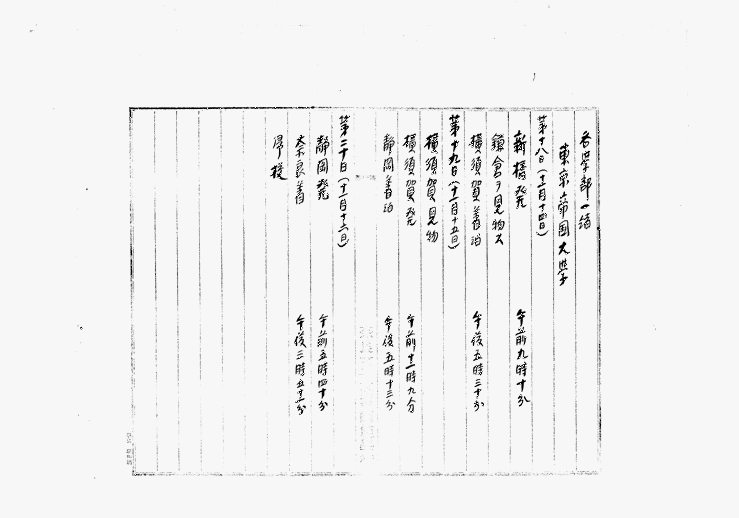 各学部一緒
東京帝国大学
第十八日(十一月十四日)
新橋発 午前九時十分
鎌倉ヲ見物ス
横須賀着泊 午後五時三十分
第十九日(十一月十五日)
横須賀見物
横須賀発 午前十一時九分
静岡着泊 午後五時十三分
第二十日(十一月十六日)
静岡発 午前五時四十分
奈良着 午後三時五十一分
帰校